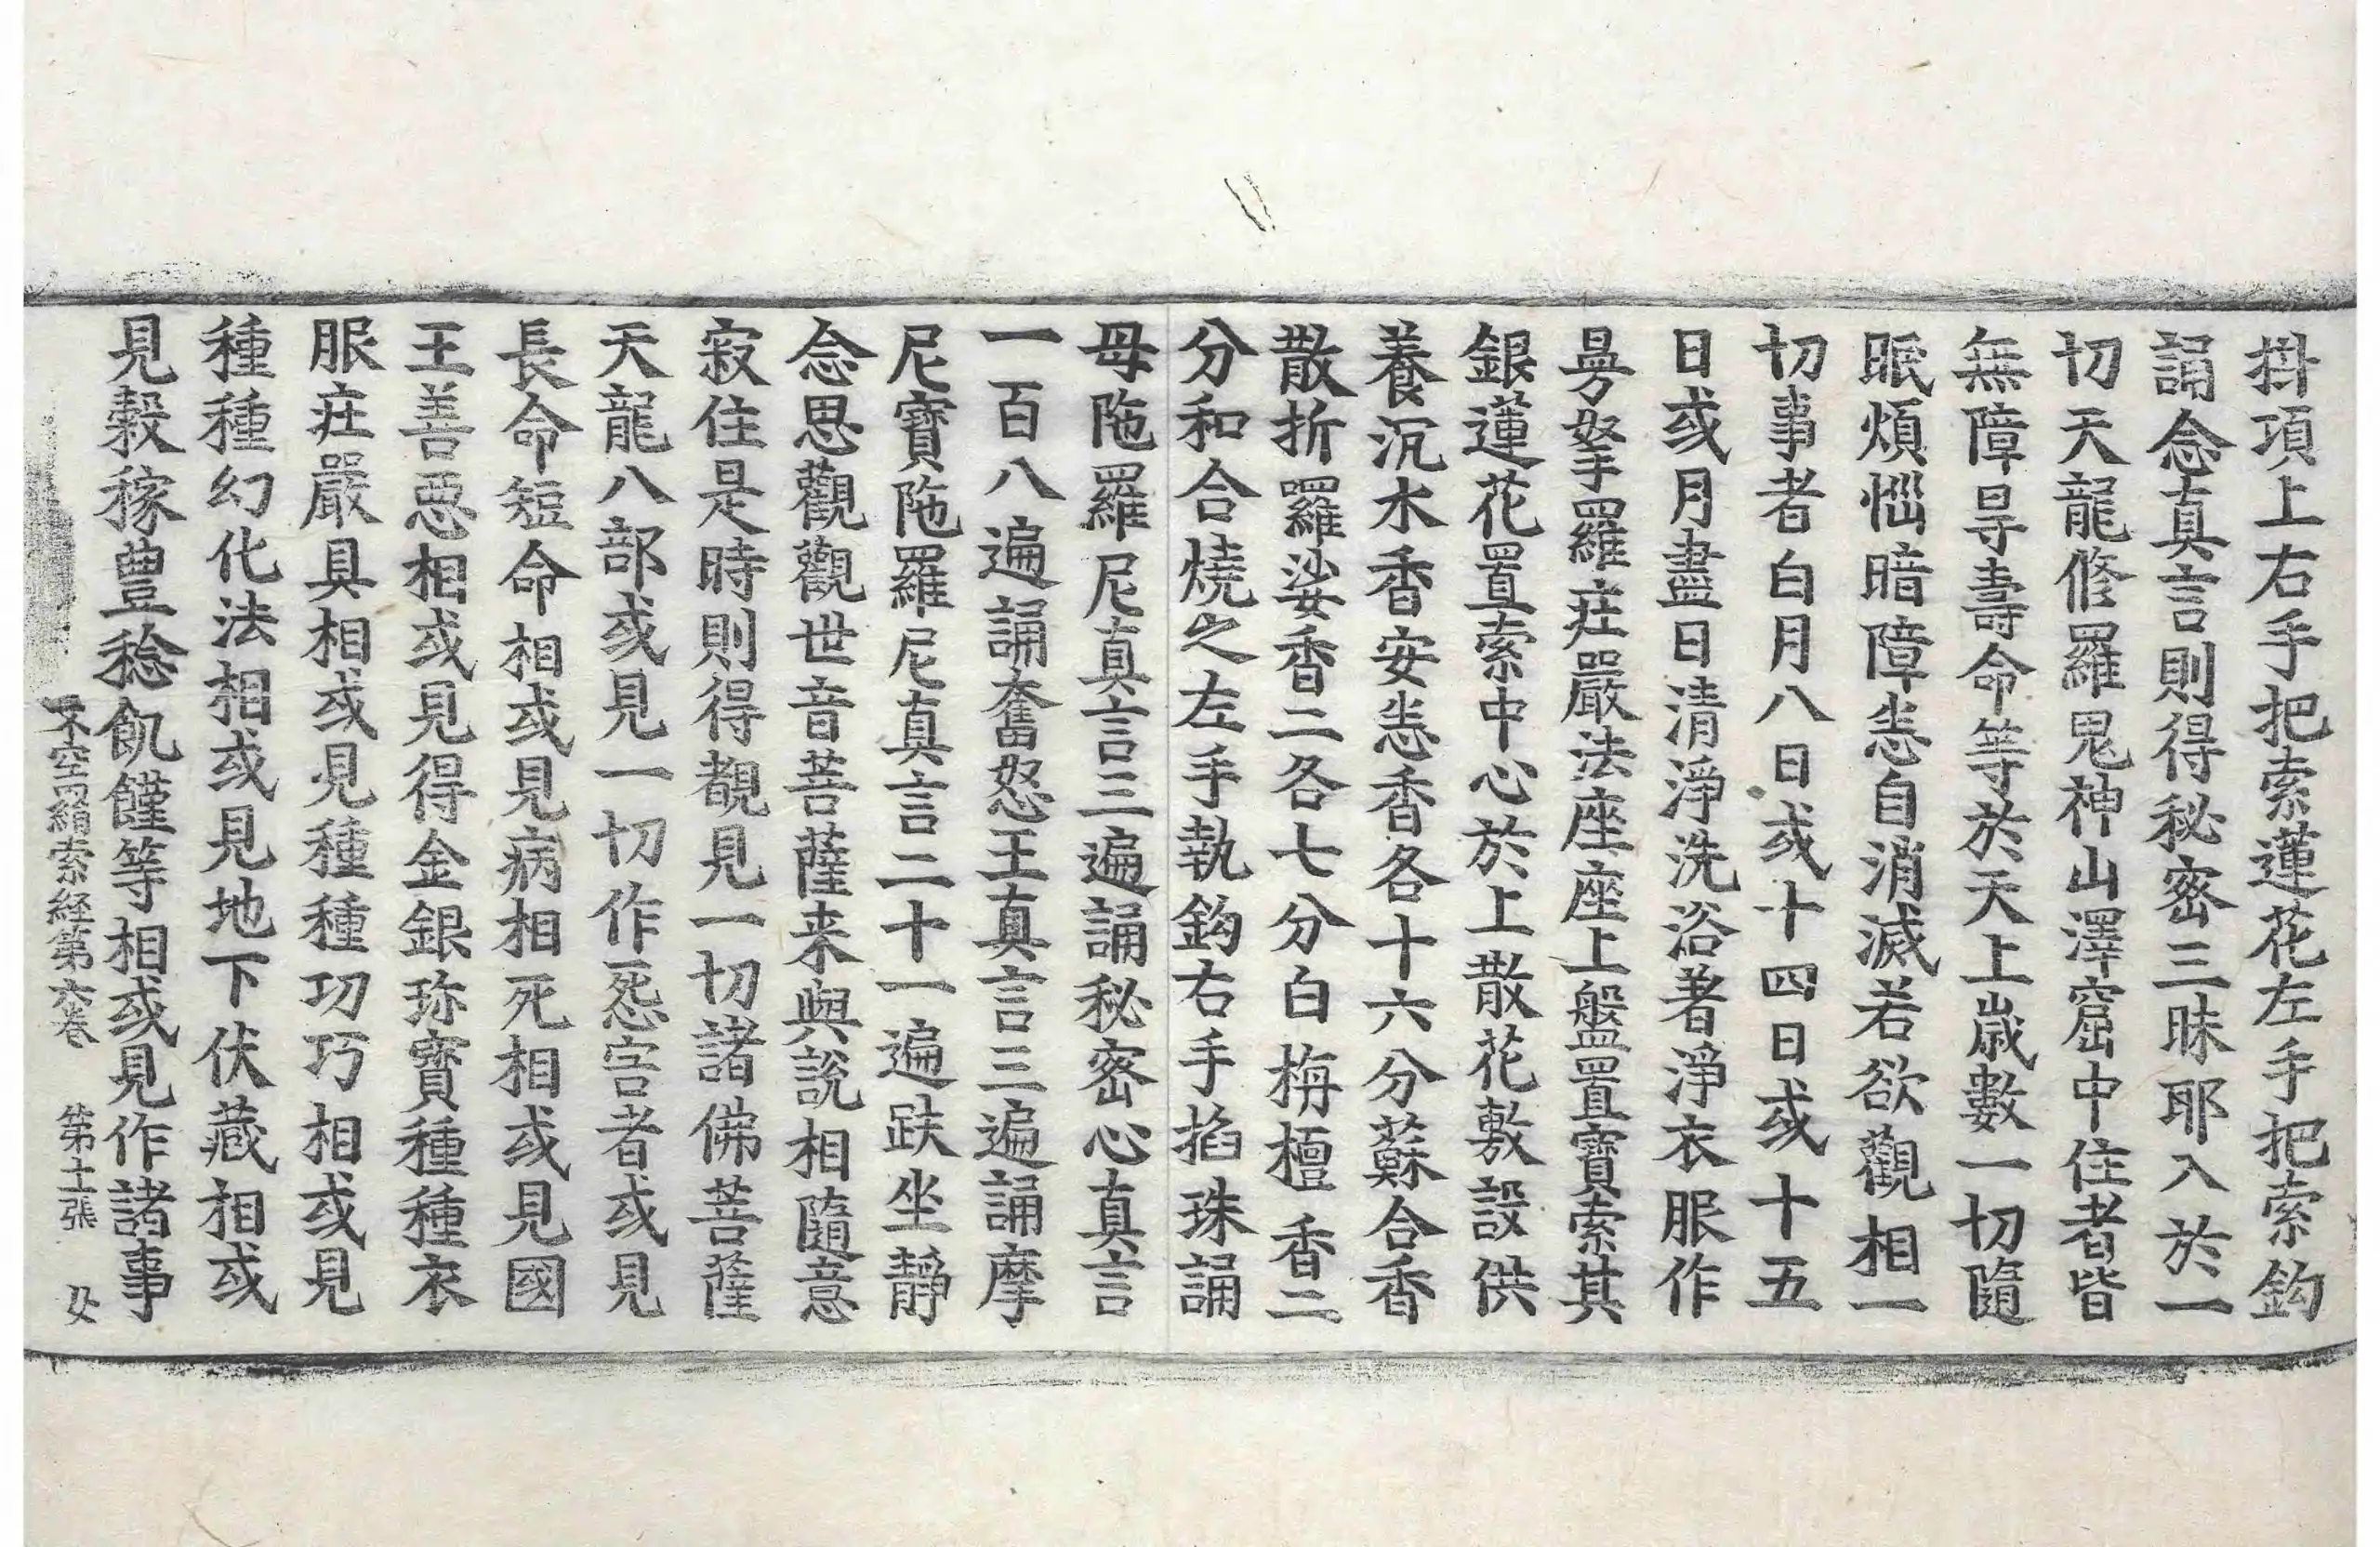 掛項上右手把索蓮花左手把索鉤
誦念真言則得秘密三昧耶入於一
切天龍修羅鬼神山澤窟中住者皆
無障㝵壽命等於天上歲數一切隨
眠煩惱暗障恙自消滅若欲觀相一
切事者白月八日或十四日或十五
日或月盡日清淨洗浴著淨衣服作
曼拏羅莊嚴法座座上盤置寶索其
銀蓮花置索中心於上散花敷設供
養沉水香安悉香各十六分蘇合香
散折羅娑香二各七分白栴檀香二
分和合燒之左手執鉤右手掐珠誦
母陁羅尼真言三遍誦秘密心真言
一百八遍誦奮怒王真言三遍誦摩
尼寶陁羅尼真言二十一遍趺坐靜
念思觀觀世音菩薩来與說相隨意
寂住是時則得覩見一切諸佛菩薩
天龍八部或見一切作惌害者或見
長命短命相或見病相死相或見國
王善惡相或見得金銀珎寶種種衣
服莊嚴具相或見種種功巧相或見
種種幻化法相或見地下伏藏相或
見穀稼豊稔飢饉等相或見作諸事
不空羂索経第六卷 第十二張 女